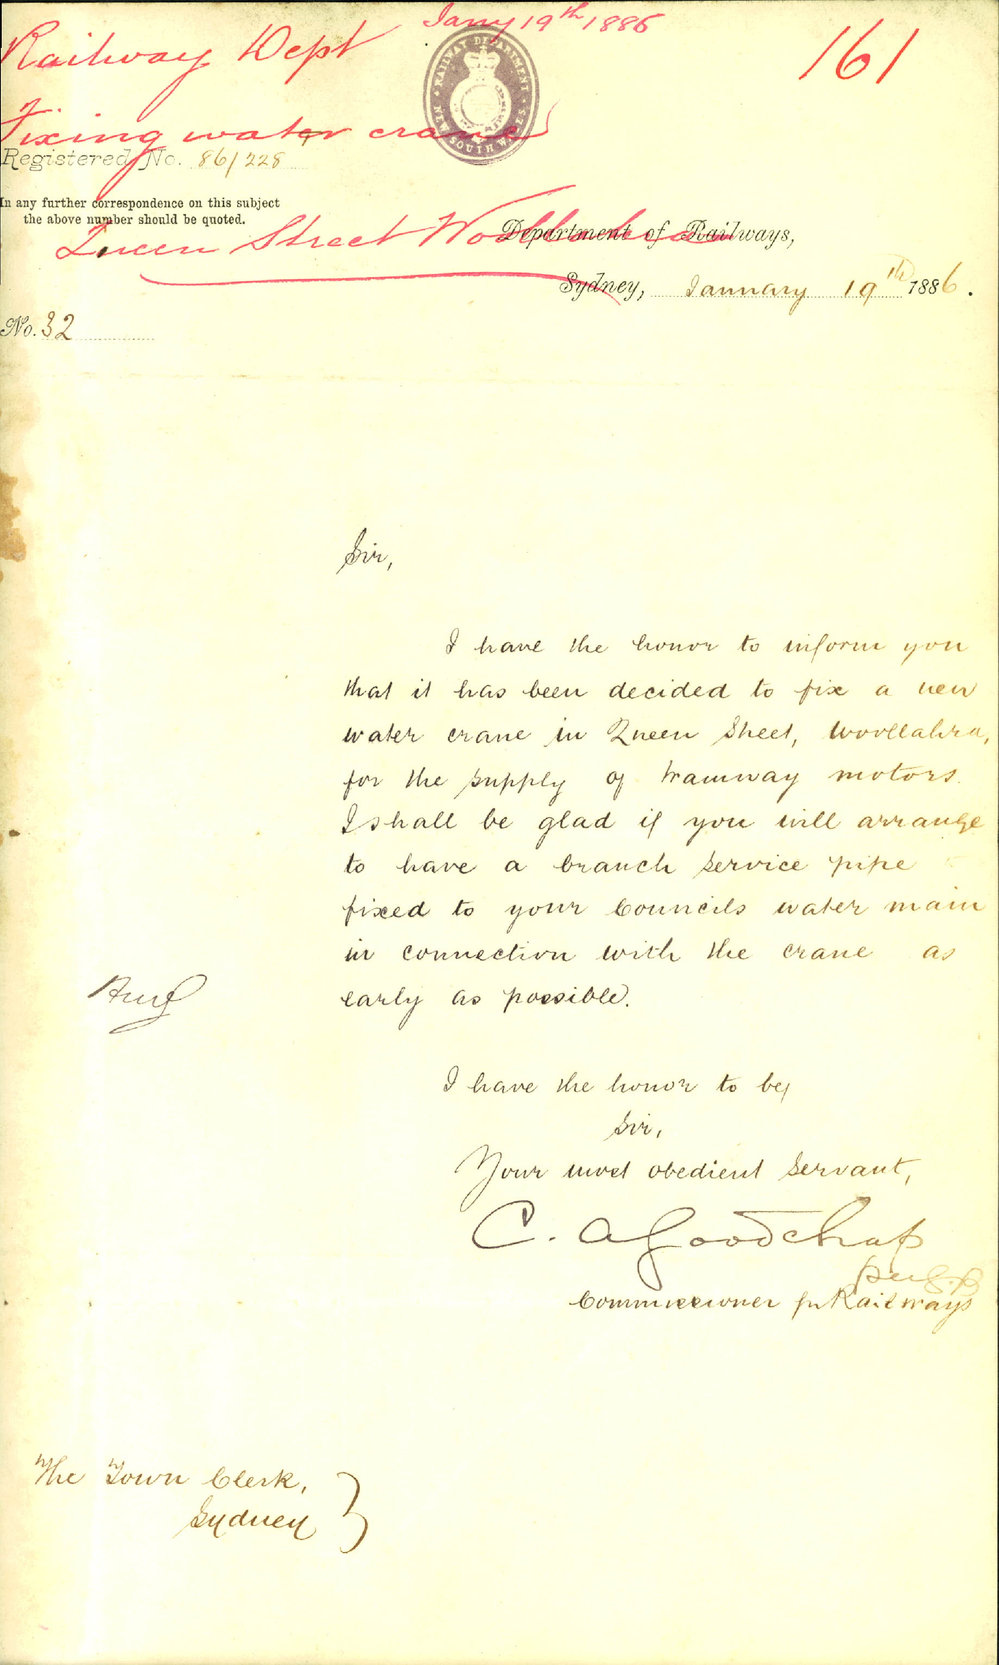 Jany 19th 1886
Railway Dept
161
RAILWAY DEPARTMENT
NEW SOUTH WALES
Fixing water crane
Registered No. 86/228
In any further correspondence on this subject
the above number should be quoted.
Queen Street Woollahra
Department of Railways,
Sydney, January 19th 1886.
No. 32
Sir,
I have the honor to inform you
that it has been decided to fix a new
water crane in Queen Street, Woollahra,
for the supply of tramway motors.
I shall be glad if you will arrange
to have a branch service pipe
fixed to your Councils water main
in connection with the crane as
early as possible.
I have the honor to be,
Sir,
Your most obedient servant,
C. A Goodchap
Commissioner for Railways
The Town Clerk,
Sydney